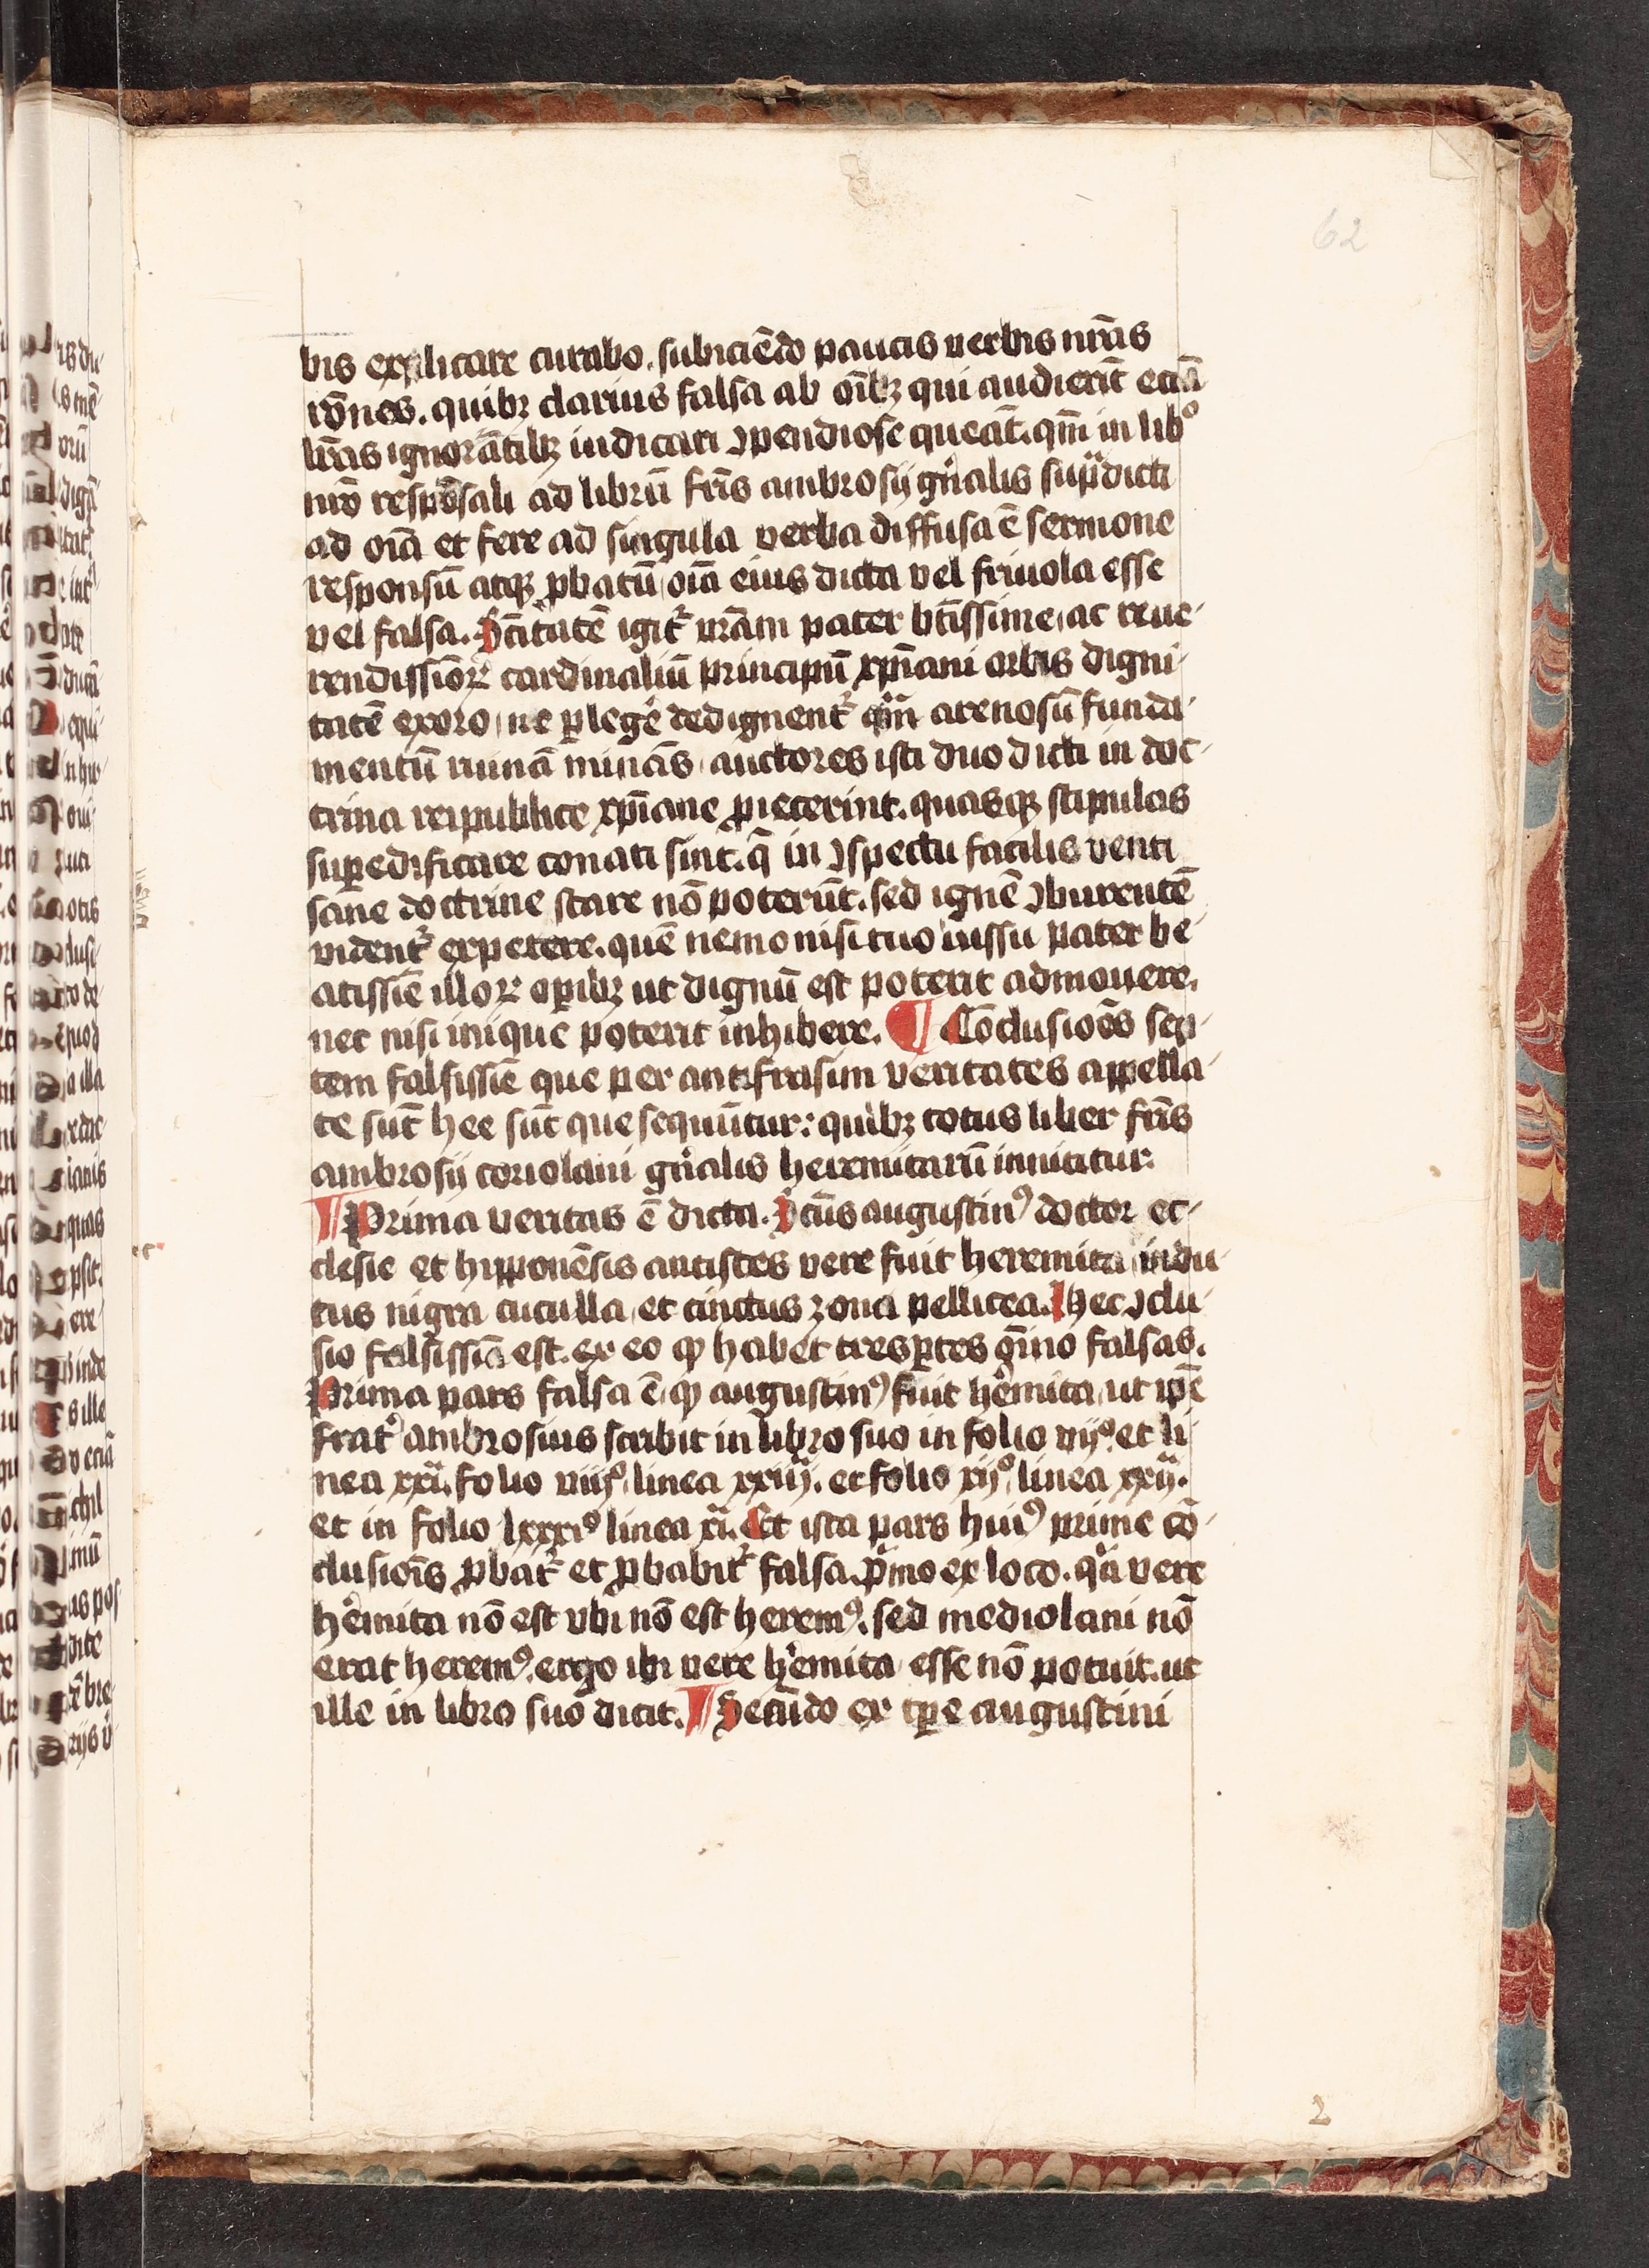 62
bis explicare curabo. subiciēdo paucis verbis nr̄as
rōnes. quibꝫ clarius falsa ab oībꝫ qui audierīt eciā
lr̄as ignorātibꝫ iudicari ꝯpendiose queāt. qm̄ in libº
nrō respōsali ad librū fr̄is ambrosij gn̄alis supͣdicti
ad oīa et fere ad singula verba diffusa ē sermone
responsū atqꝫ ꝓbatū oīa eius dicta vel friuola esse
vel falsa. Sc̄itatē igit᷑ vr̄am pater bt̄issime ac reue-
rendissiōꝝ cardinaliū principū xp̄iani orbis digni-
tatē exoro ne ꝑlegē dedignent᷑ qm̄ arenosū funda-
mentū ruinā mināns auctores isti duo dicti in doc-
trina reipublice xp̄iane ꝓiecerint. quasqꝫ stipulas
suꝑedificare conati sint. q̄ in ꝯspectu facilis venti
sane doctrine stare nō poterūt. sed ignē ꝯburentē
vident᷑ expetere. quē nemo nisi tuo iussu pater be-
atissīe illoꝝ oꝑibꝫ ut dignū est poterit admouere.
nec nisi inique poterit inhibere. ¶ Cōclusiōes sep-
tem falsissīe que per antifrasim veritates appella-
te sūt hee sūt que sequūtur: quibꝫ totus liber fr̄is
ambrosij coriolani gn̄alis heremitarū innititur.
¶ Prima veritas ē dicta. Sc̄tus augustinꝰ doctor ec-
clesie et hipponēsis antistes vere fuit heremita indu-
tus nigra cuculla et cinctus zona pellicea. Hec ꝯclu-
sio falsissīa est. ex eo ꝙ habet tres ꝑtes oīno falsas.
Prima pars falsa ē ꝙ augustinꝰ fuit hēmita ut ip̄e
frat᷑ ambrosius scribit in libro suo in folio vijº. et li-
nea xxi. folio viijº linea xxiiij. et folio xijº linea xxij.
et in folio lxxxiº linea xi. Et ista pars huiꝰ prime cō-
clusiōis ꝓbat᷑ et ꝓbabit᷑ falsa. pͥmo ex loco. qͥa vere
hēmita nō est vbi nō est heremꝰ. sed mediolani nō
erat heremꝰ. ergo ibi vere hēmita esse nō potuit. ut
ille in libro suo dicit. ¶ Secūdo ex tꝑe augustini
2